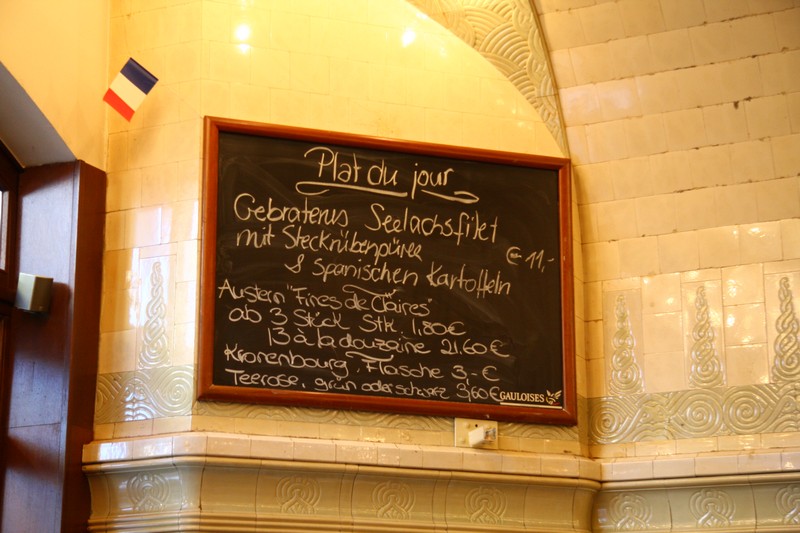 Plat du jour
Gebratenes Seelachsfilet
mit Steckrübenpüree € 11,-
& Spanischen Kartoffeln
Austern "Fines de Claires"
ab 3 Stück Stk. 1,80 €
13 à la douzaine 21,60 €
Kronenbourg, Flasche 3,- €
Teerose, grün oder schwarz 3,60 €
GAULOISES